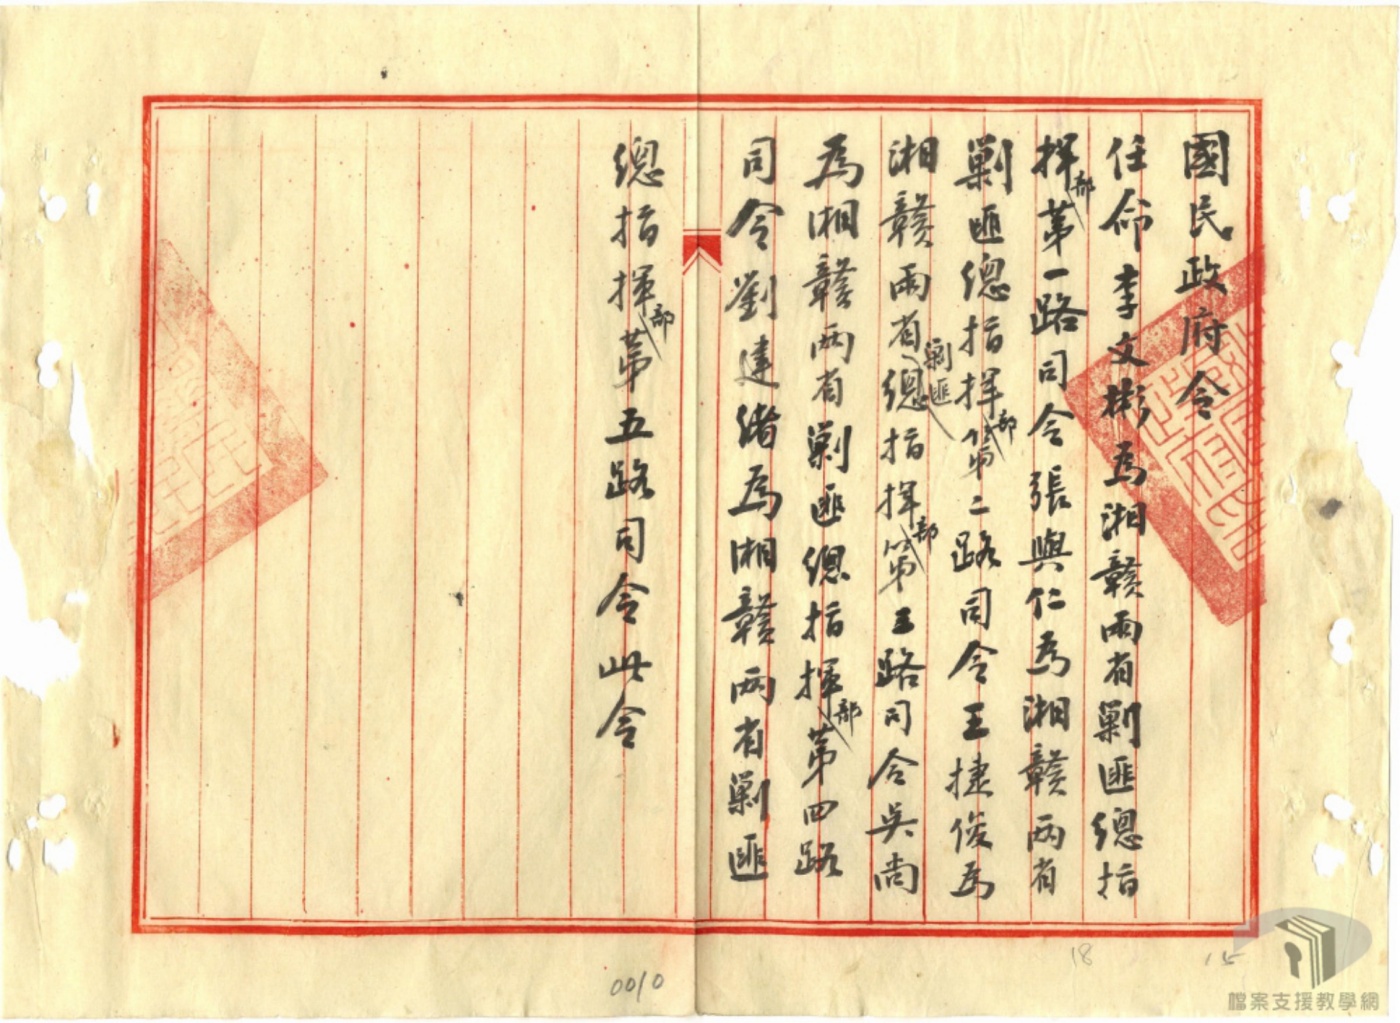 國民政府令
任命李文彬為湘贛兩省剿匪總指
揮部第一路司令張與仁為湘贛两省
剿匪總指揮部第二路司令王捷俊為
湘贛兩省剿匪總指揮部第三路司令吳尚
為湘贛两省剿匪總指揮部第四路
司令劉建緒為湘贛两省剿匪
總指揮部第五路司令此令
0010
18
15
檔案支援教學網